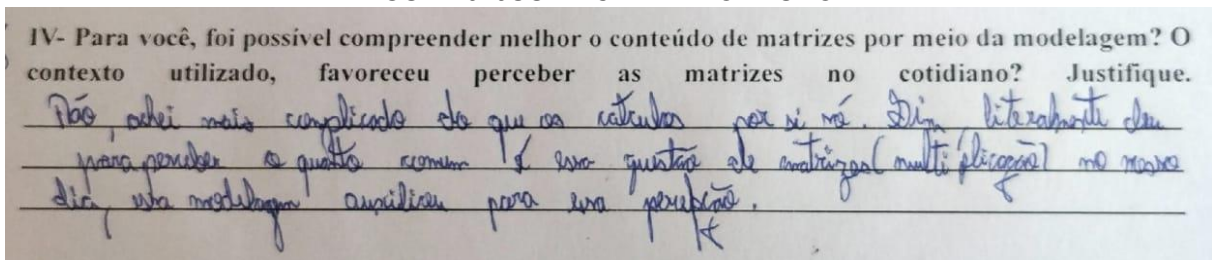 IV- Para você, foi possível compreender melhor o conteúdo de matrizes por meio da modelagem? O
contexto utilizado, favoreceu perceber as matrizes no cotidiano? Justifique.
Não, achei mais complicado do que os calculos por si só. Sim, literalmente deu
para perceber o quanto comum é essa questão de matrizes (multiplicação) no nosso
dia, modelagem auxiliou para essa percepção.